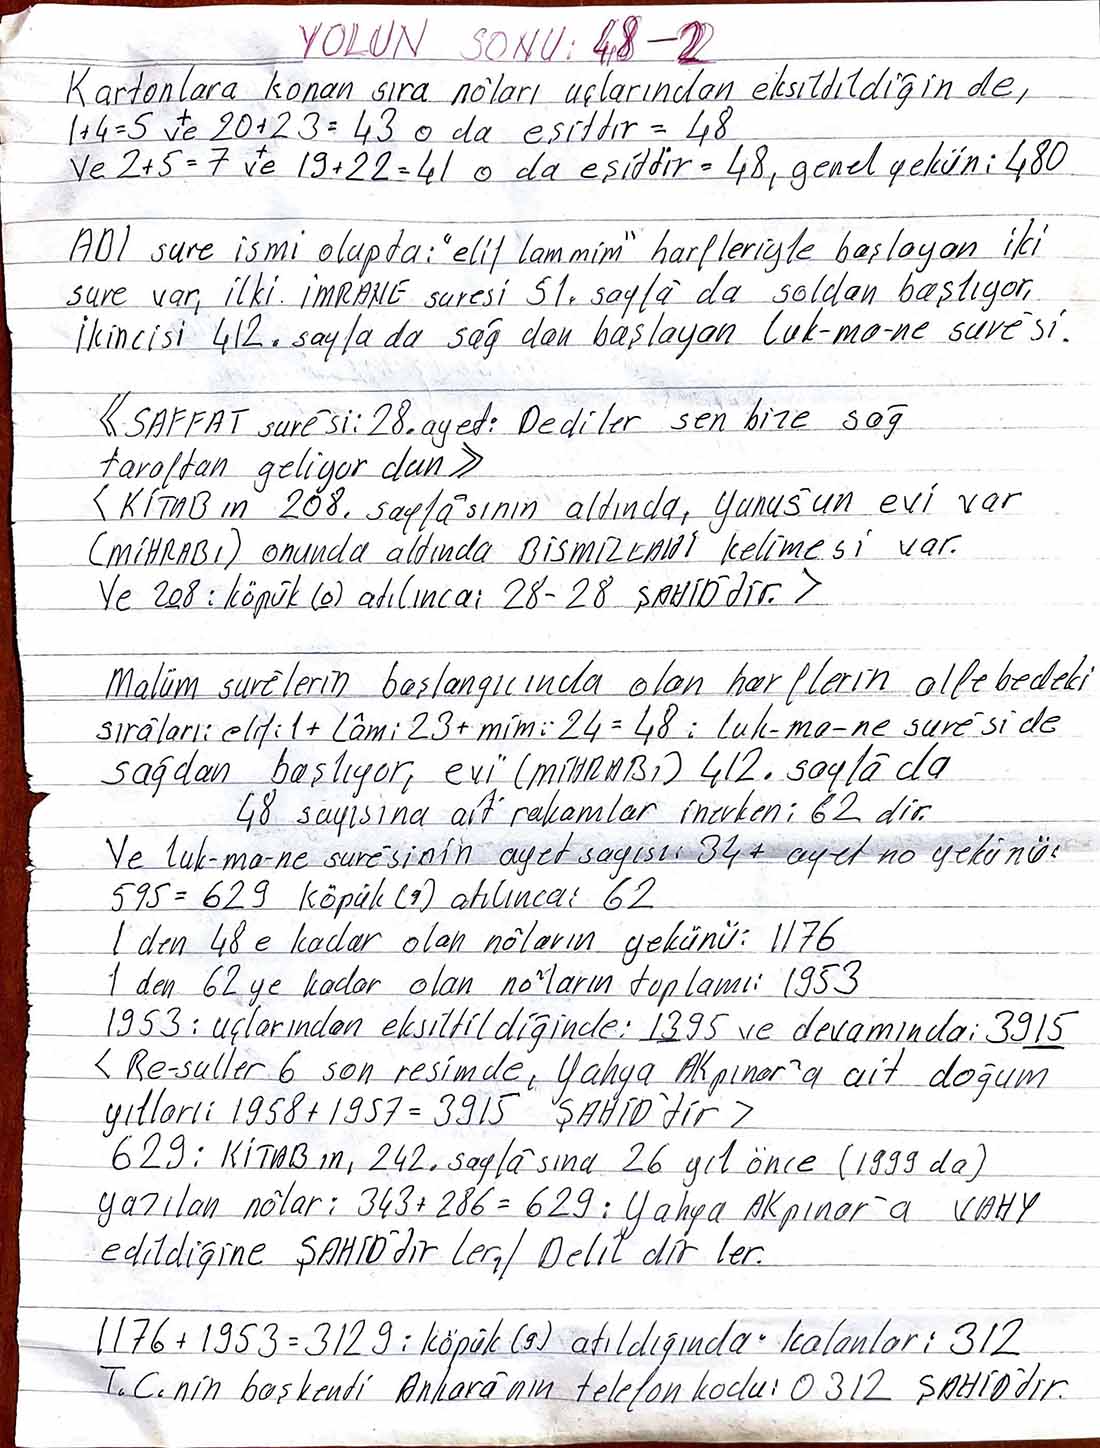 YOLUN SONU: 48-2
Kartonlara konan sıra nôları uçlarından eksildildiğin de,
1+4=5 ve + 20+23=43 o da eşittir = 48
Ve 2+5=7 ve + 19+22=41 o da eşiddir = 48, genel yekün: 480
ADI sure ismi olupta: "elif lam mim" harfleriyle başlayan iki
sure var, ilki. İMRANE suresi 51. sayfâ da soldan başlıyor,
ikincisi 412. sayfa da sağ dan başlayan luk-ma-ne surêsi.
《SAFFAT surêsi: 28. ayet: Dediler sen bize sağ
taraftan geliyor dun》
<KİTAB ın 208. sayfâsının altında, Yunus'un evi var
(MİHRABI) onunda altında BİSMİLLAHİ kelimesi var.
Ve 208: köpük (0) atılınca: 28-28 ŞAHİD'dir.>
Malüm surêlerin başlangıcında olan harflerin alfebedeki
sırâları: elif: 1 + Lâm: 23 + mim: 24 = 48 : luk-ma-ne surêsi de
sağdan başlıyor, evi (MİHRABI) 412. sayfâ da
48 sayısına ait rakamlar inerken: 62 dir.
Ve luk-ma-ne surêsinin ayet sayısı: 34 + ayet no yekünü:
595 = 629 köpük (9) atılınca: 62
1 den 48 e kadar olan nôların yekünü: 1176
1 den 62 ye kadar olan no'ların toplamı: 1953
1953: uçlarından eksiltildiğinde: 1395 ve devamında: 3915
<Re-suller 6 son resimde, Yahya AKpınar'a ait doğum
yılları: 1958+1957=3915 ŞAHİD'dir>
629: KİTAB ın, 242. sayfâsına 26 yıl önce (1999 da)
yazılan nôlar: 343+286=629: Yahya AKpınar'a VAHY
edildiğine ŞAHİD'dir ler,/ Delil dir ler.
1176+1953=3129: köpük (9) atıldığında. kalanlar: 312
T.C.nin başkendi Ankara'nın telefon kodu: 0312 ŞAHİD'dir.